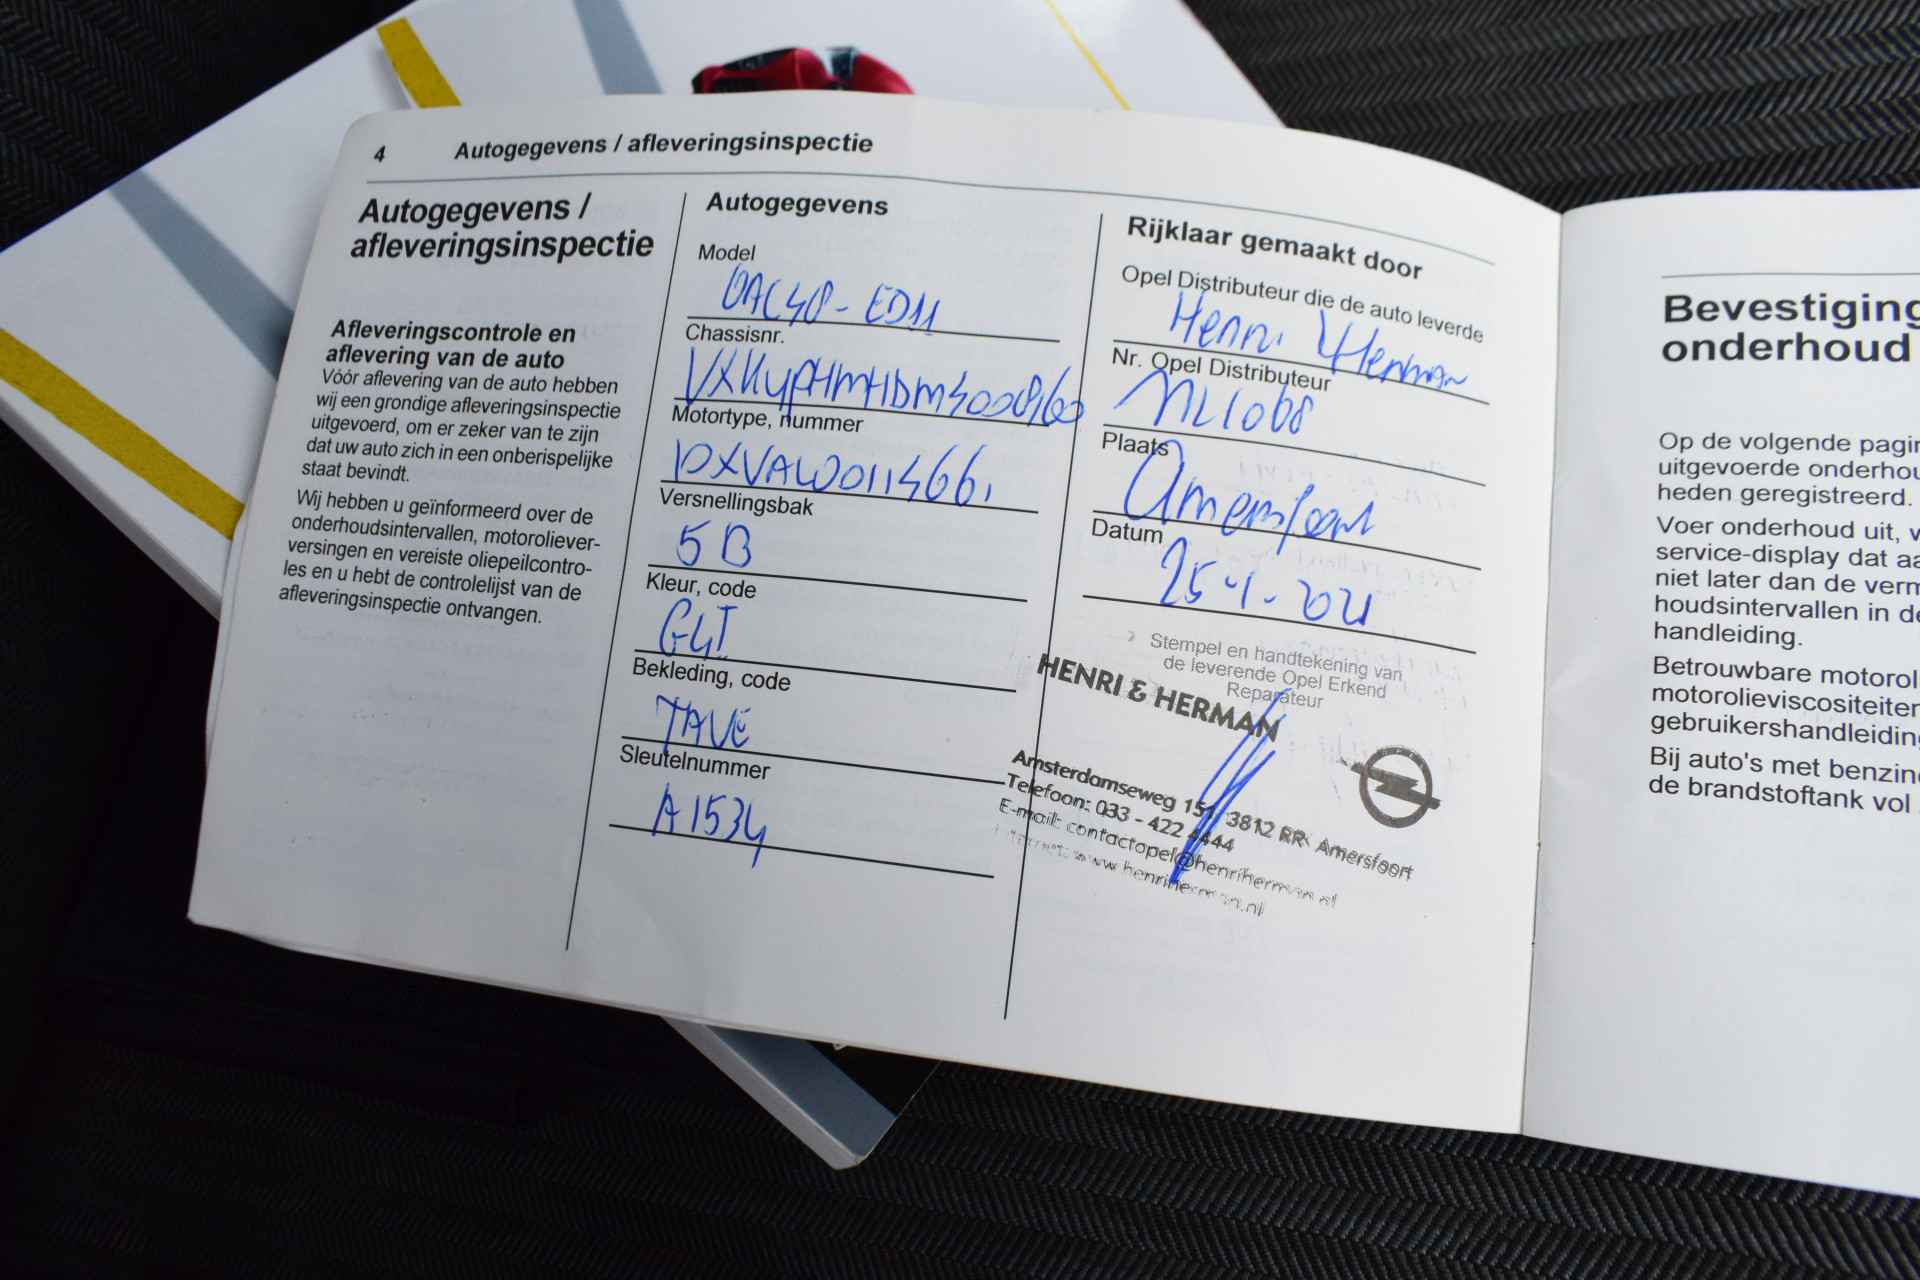 4 Autogegevens / afleveringsinspectie
Autogegevens /
afleveringsinspectie
Afleveringscontrole en
aflevering van de auto
Vóór aflevering van de auto hebben
wij een grondige afleveringsinspectie
uitgevoerd, om er zeker van te zijn
dat uw auto zich in een onberispelijke
staat bevindt.
Wij hebben u geïnformeerd over de
onderhoudsintervallen, motoroliever-
versingen en vereiste oliepeilcontro-
les en u hebt de controlelijst van de
afleveringsinspectie ontvangen.
Autogegevens
Model
Chassisnr.
Motortype, nummer
Versnellingsbak
5 B
Kleur, code
G4I
Bekleding, code
TAVE
Sleutelnummer
A1534
Rijklaar gemaakt door
Opel Distributeur die de auto leverde
Henri & Herman
Nr. Opel Distributeur
NL1068
Plaats
Amersfoort
Datum
Stempel en handtekening van
de leverende Opel Erkend
Reparateur
HENRI & HERMAN
Amsterdamseweg 151, 3812 RR Amersfoort
Telefoon: 033 - 422 4444
E-mail: contactopel@henriherman.nl
Internet: www.henriherman.nl
Bevestiging
onderhoud
Op de volgende pagin
uitgevoerde onderhou
heden geregistreerd.
Voer onderhoud uit, v
service-display dat aa
niet later dan de verm
houdsintervallen in de
handleiding.
Betrouwbare motorol
motorolieviscositeiten
gebruikershandleiding
Bij auto's met benzine
de brandstoftank vol